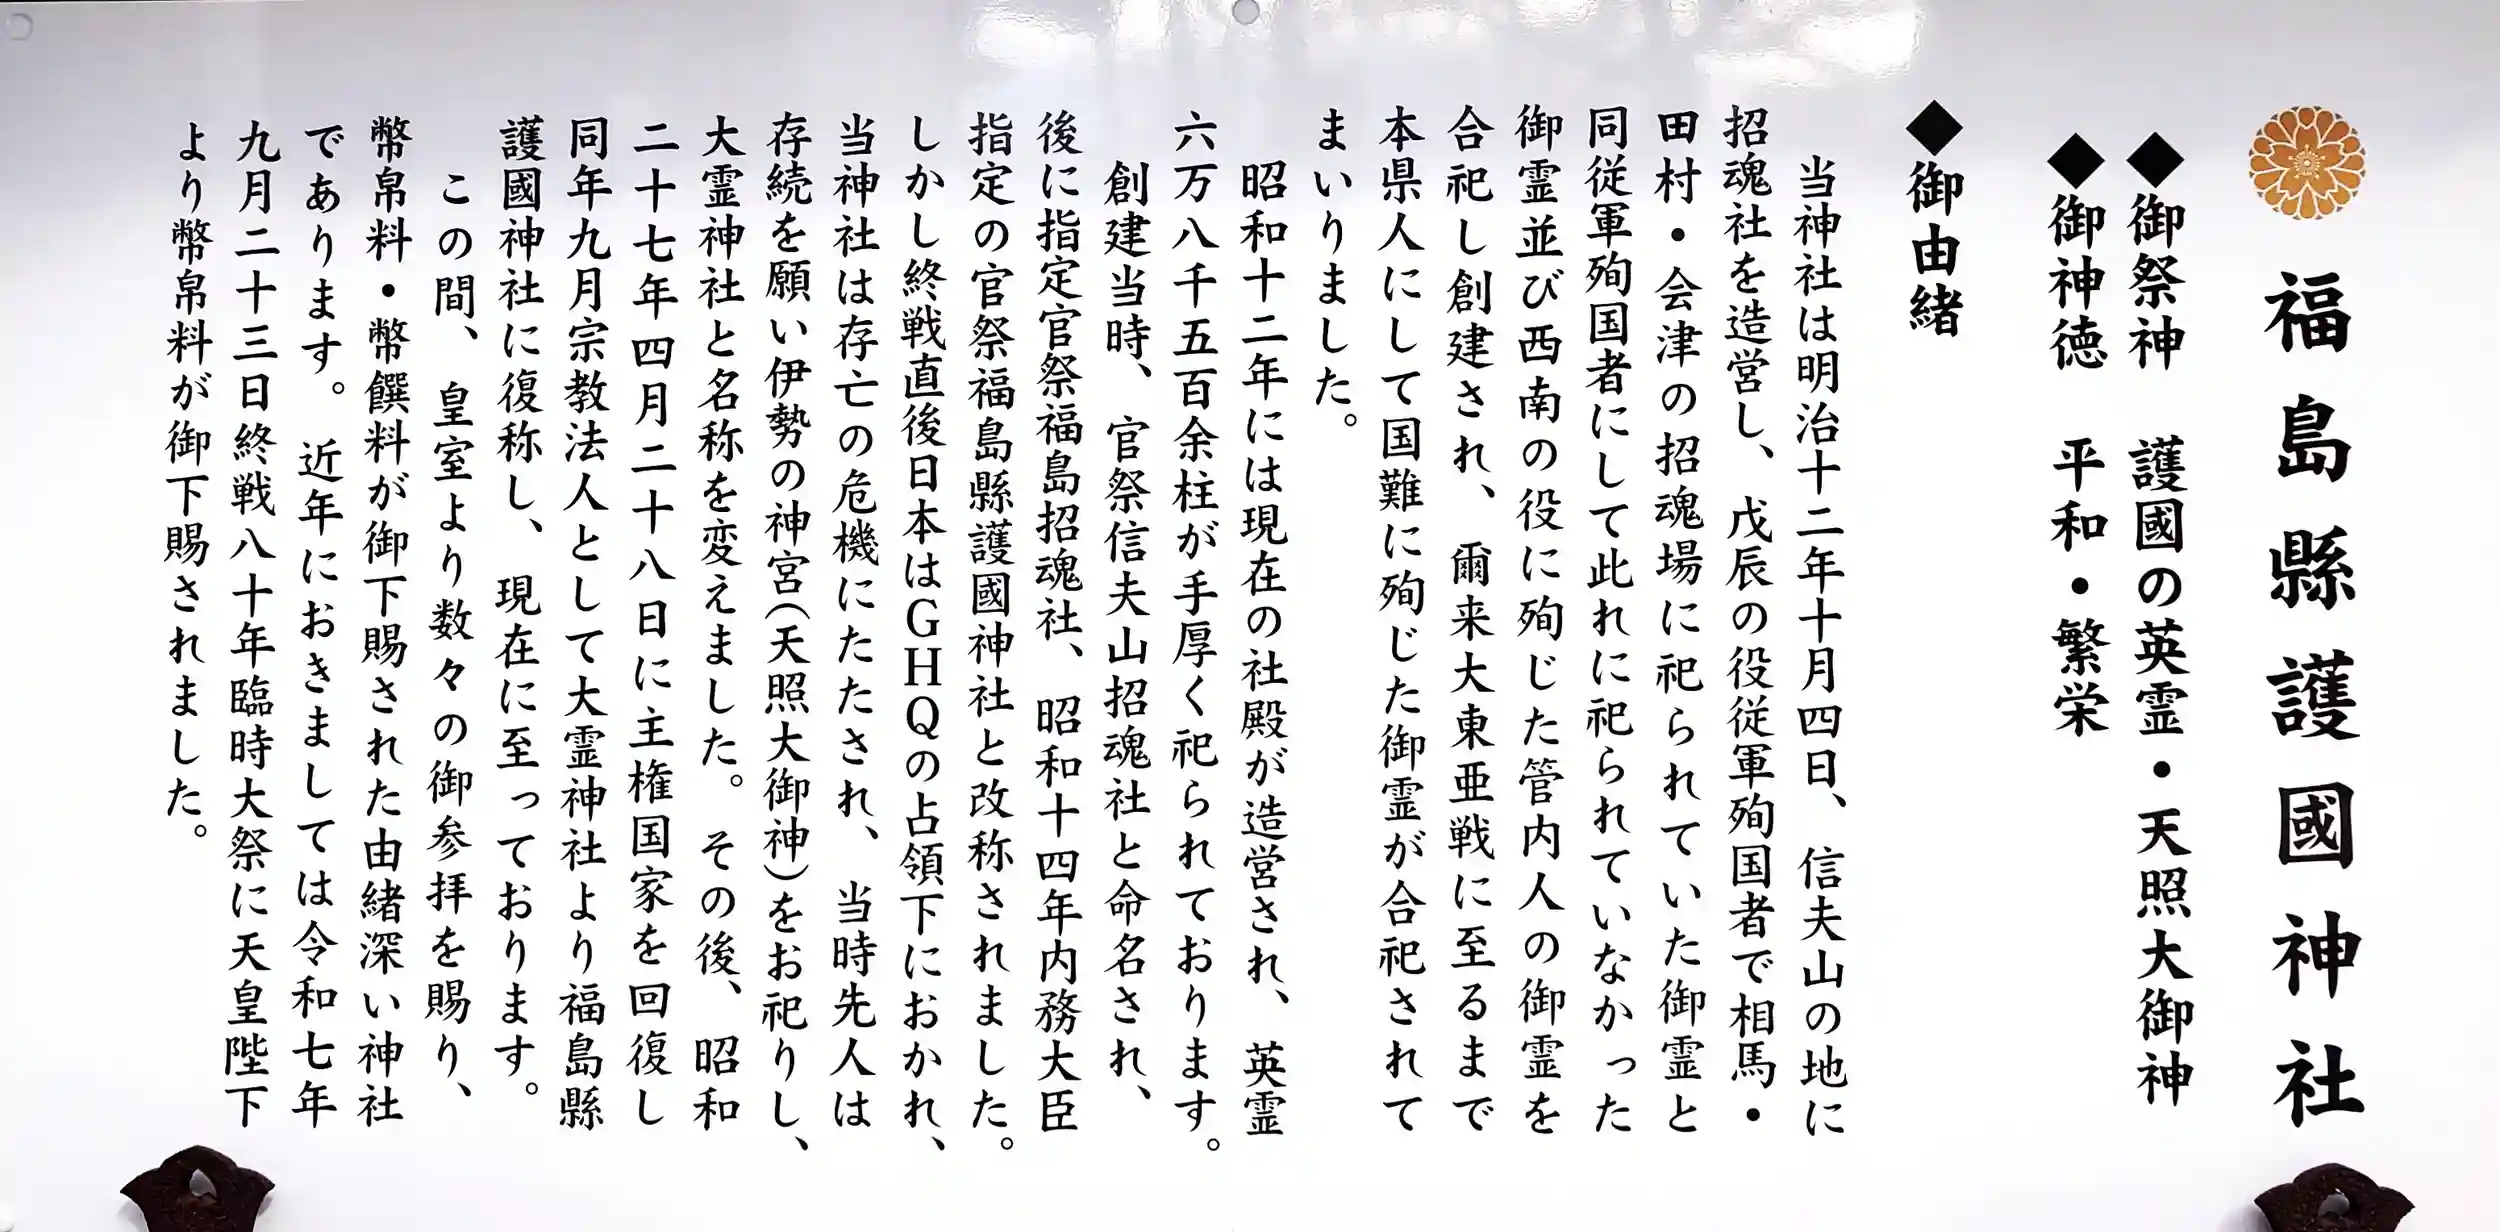 福島縣護國神社
◆御祭神　護國の英霊・天照大御神
◆御神徳　平和・繁栄
◆御由緒
当神社は明治十二年十月四日、信夫山の地に
招魂社を造営し、戊辰の役従軍殉国者で相馬・
田村・会津の招魂場に祀られていた御霊と
同従軍殉国者にして此れに祀られていなかった
御霊並び西南の役に殉じた管内人の御霊を
合祀し創建され、爾来大東亜戦に至るまで
本県人にして国難に殉じた御霊が合祀されて
まいりました。
昭和十二年には現在の社殿が造営され、英霊
六万八千五百余柱が手厚く祀られております。
創建当時、官祭信夫山招魂社と命名され、
後に指定官祭福島招魂社、昭和十四年内務大臣
指定の官祭福島縣護國神社と改称されました。
しかし終戦直後日本はGHQの占領下におかれ、
当神社は存亡の危機にたたされ、当時先人は
存続を願い伊勢の神宮(天照大御神)をお祀りし、
大霊神社と名称を変えました。その後、昭和
二十七年四月二十八日に主権国家を回復し
同年九月宗教法人として大霊神社より福島縣
護國神社に復称し、現在に至っております。
この間、皇室より数々の御参拝を賜り、
幣帛料・幣饌料が御下賜された由緒深い神社
であります。近年におきましては令和七年
九月二十三日終戦八十年臨時大祭に天皇陛下
より幣帛料が御下賜されました。